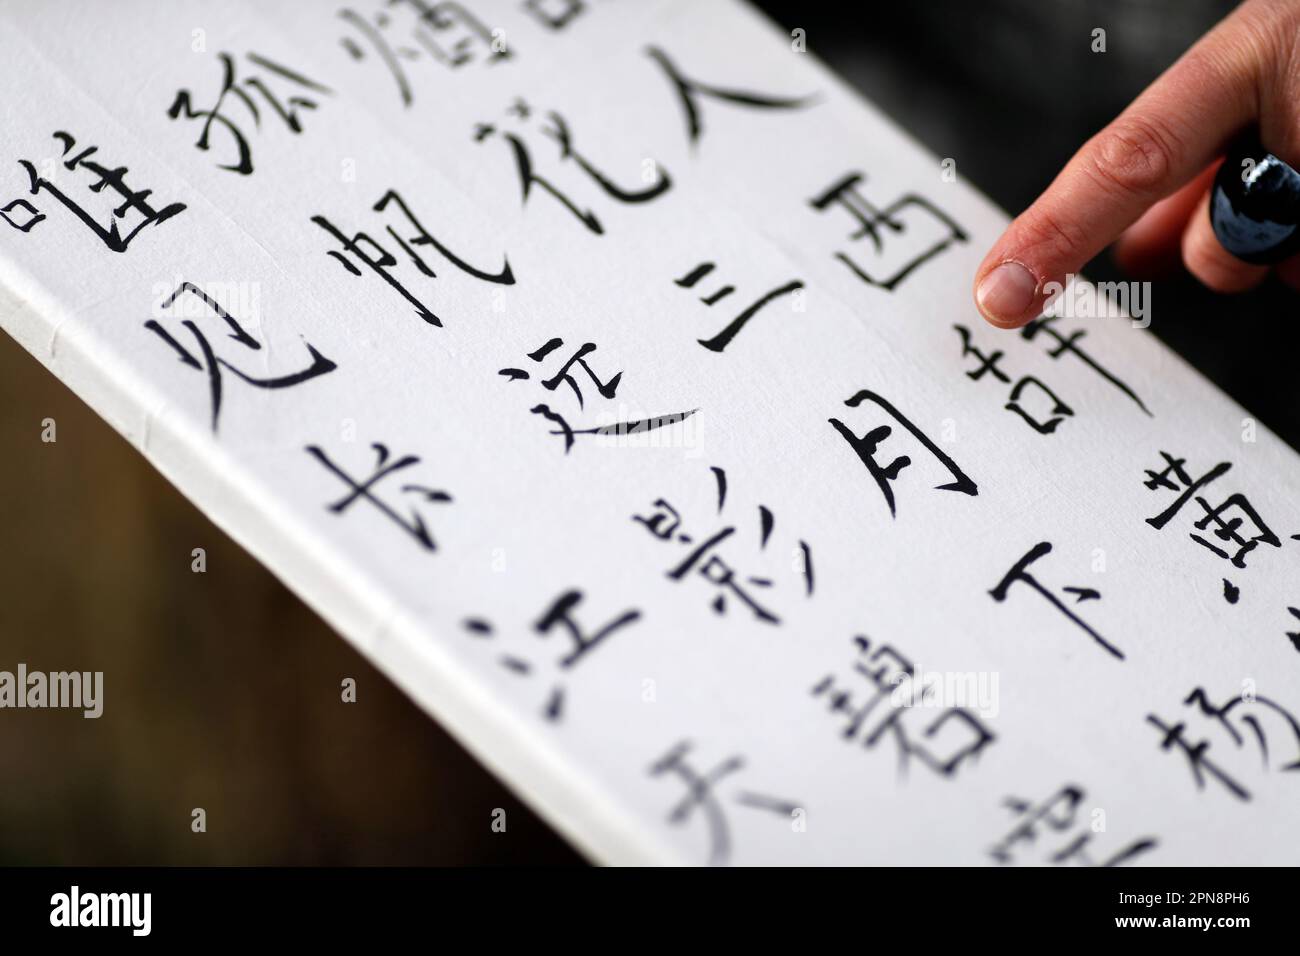 人西辞黄
烟花三月下杨
孤帆远影碧空
唯见长江天
alamy
Image ID: 2PN8PH6
www.alamy.com